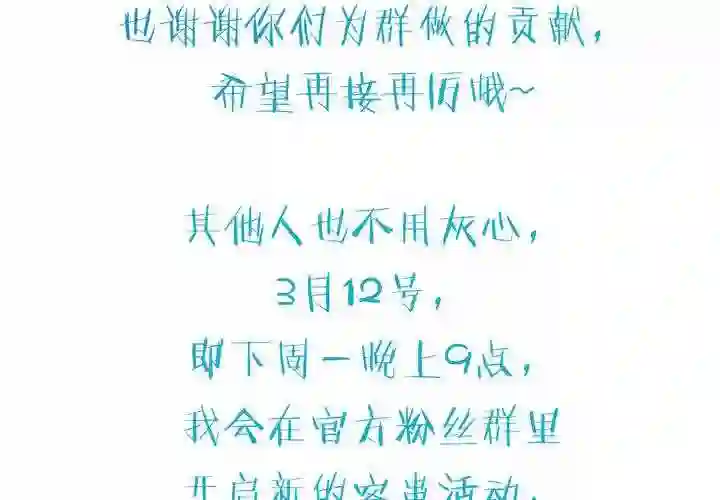 也谢谢你们为群做的贡献，
希望再接再厉哦~
其他人也不用灰心，
3月12号，
即下周一晚上9点，
我会在官方粉丝群里
开启新的客串活动，